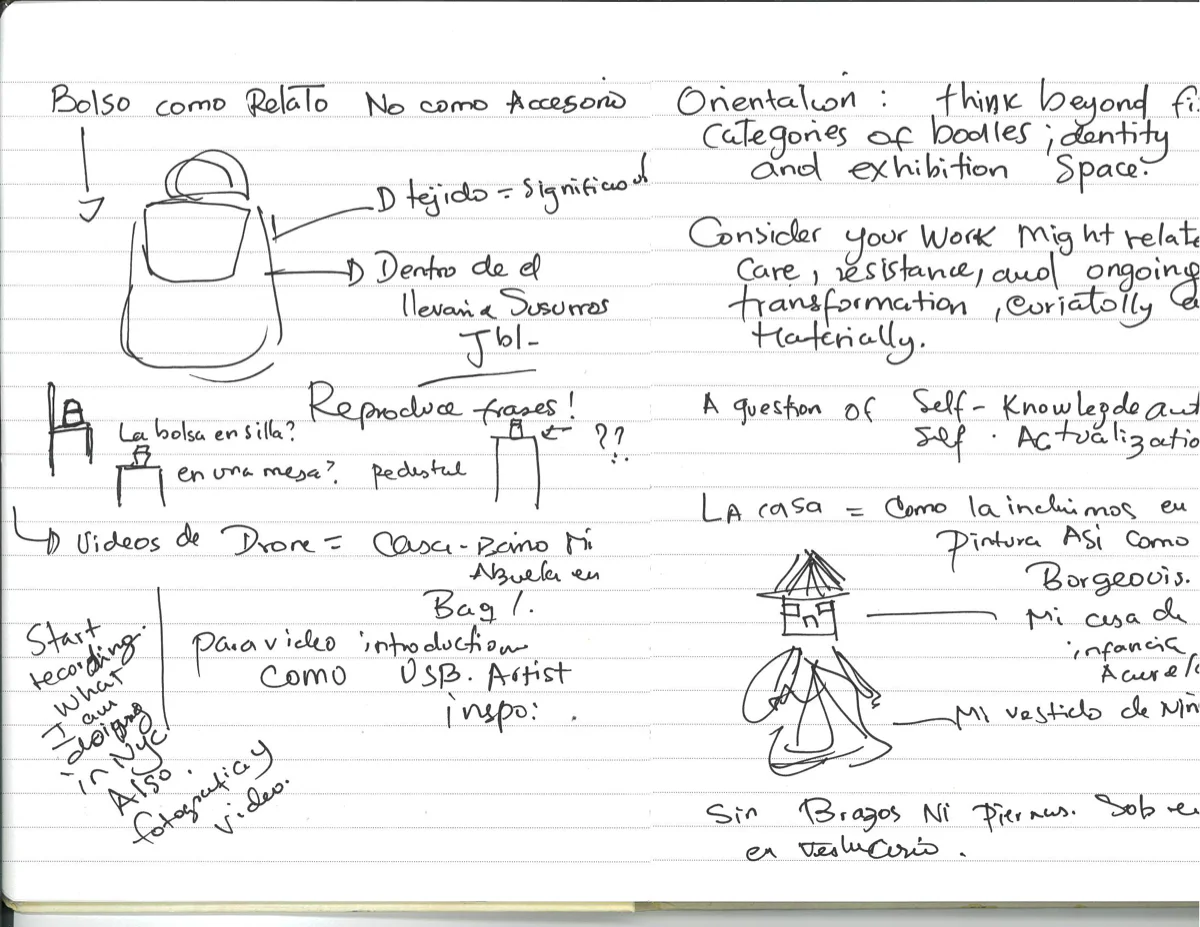 Bolso como Relato No como Accesorio
tejido = Significado
Dentro de el
llevaria Susurros
Jbl-
Reproduce frases!
La bolsa en silla?
??
en una mesa? pedestal
Videos de Drone = Casa-Baino Mi
Abuela en
Bag 1.
para video introduction
como USB. Artist
inspo:
Start
recording.
What
I am
doigng
in NYC
Also.
fotografia y
video.
Orientation: think beyond fi
Categories of bodies; identity
and exhibition Space.
Consider your Work Might relate
Care, resistance, and ongoing
transformation,
Materially.
A question of Self-Knowlegde and
Self. Actualizatio
LA casa = Como la incluimos en
Pintura Asi Como
Borgeouis.
Mi casa de
infancia
Mi vestido de Niñ
Sin Brazos Ni Piernas. Sobre
en